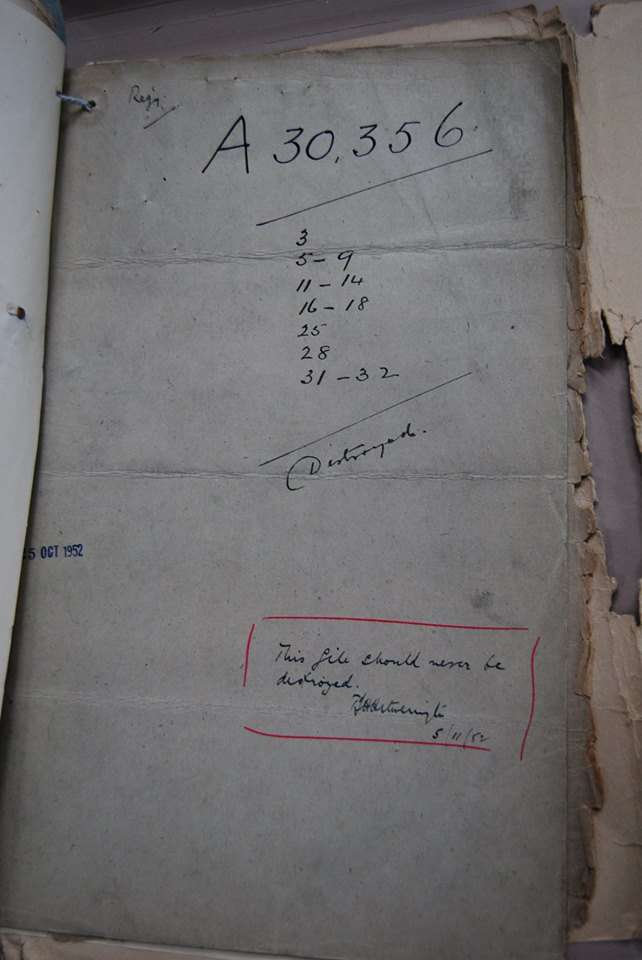 Reg'y.
A 30,356.
3
5 - 9
11 - 14
16 - 18
25
28
31 - 32
Destroyed.
5 OCT 1952
This file should never be
destroyed.
5/11/52